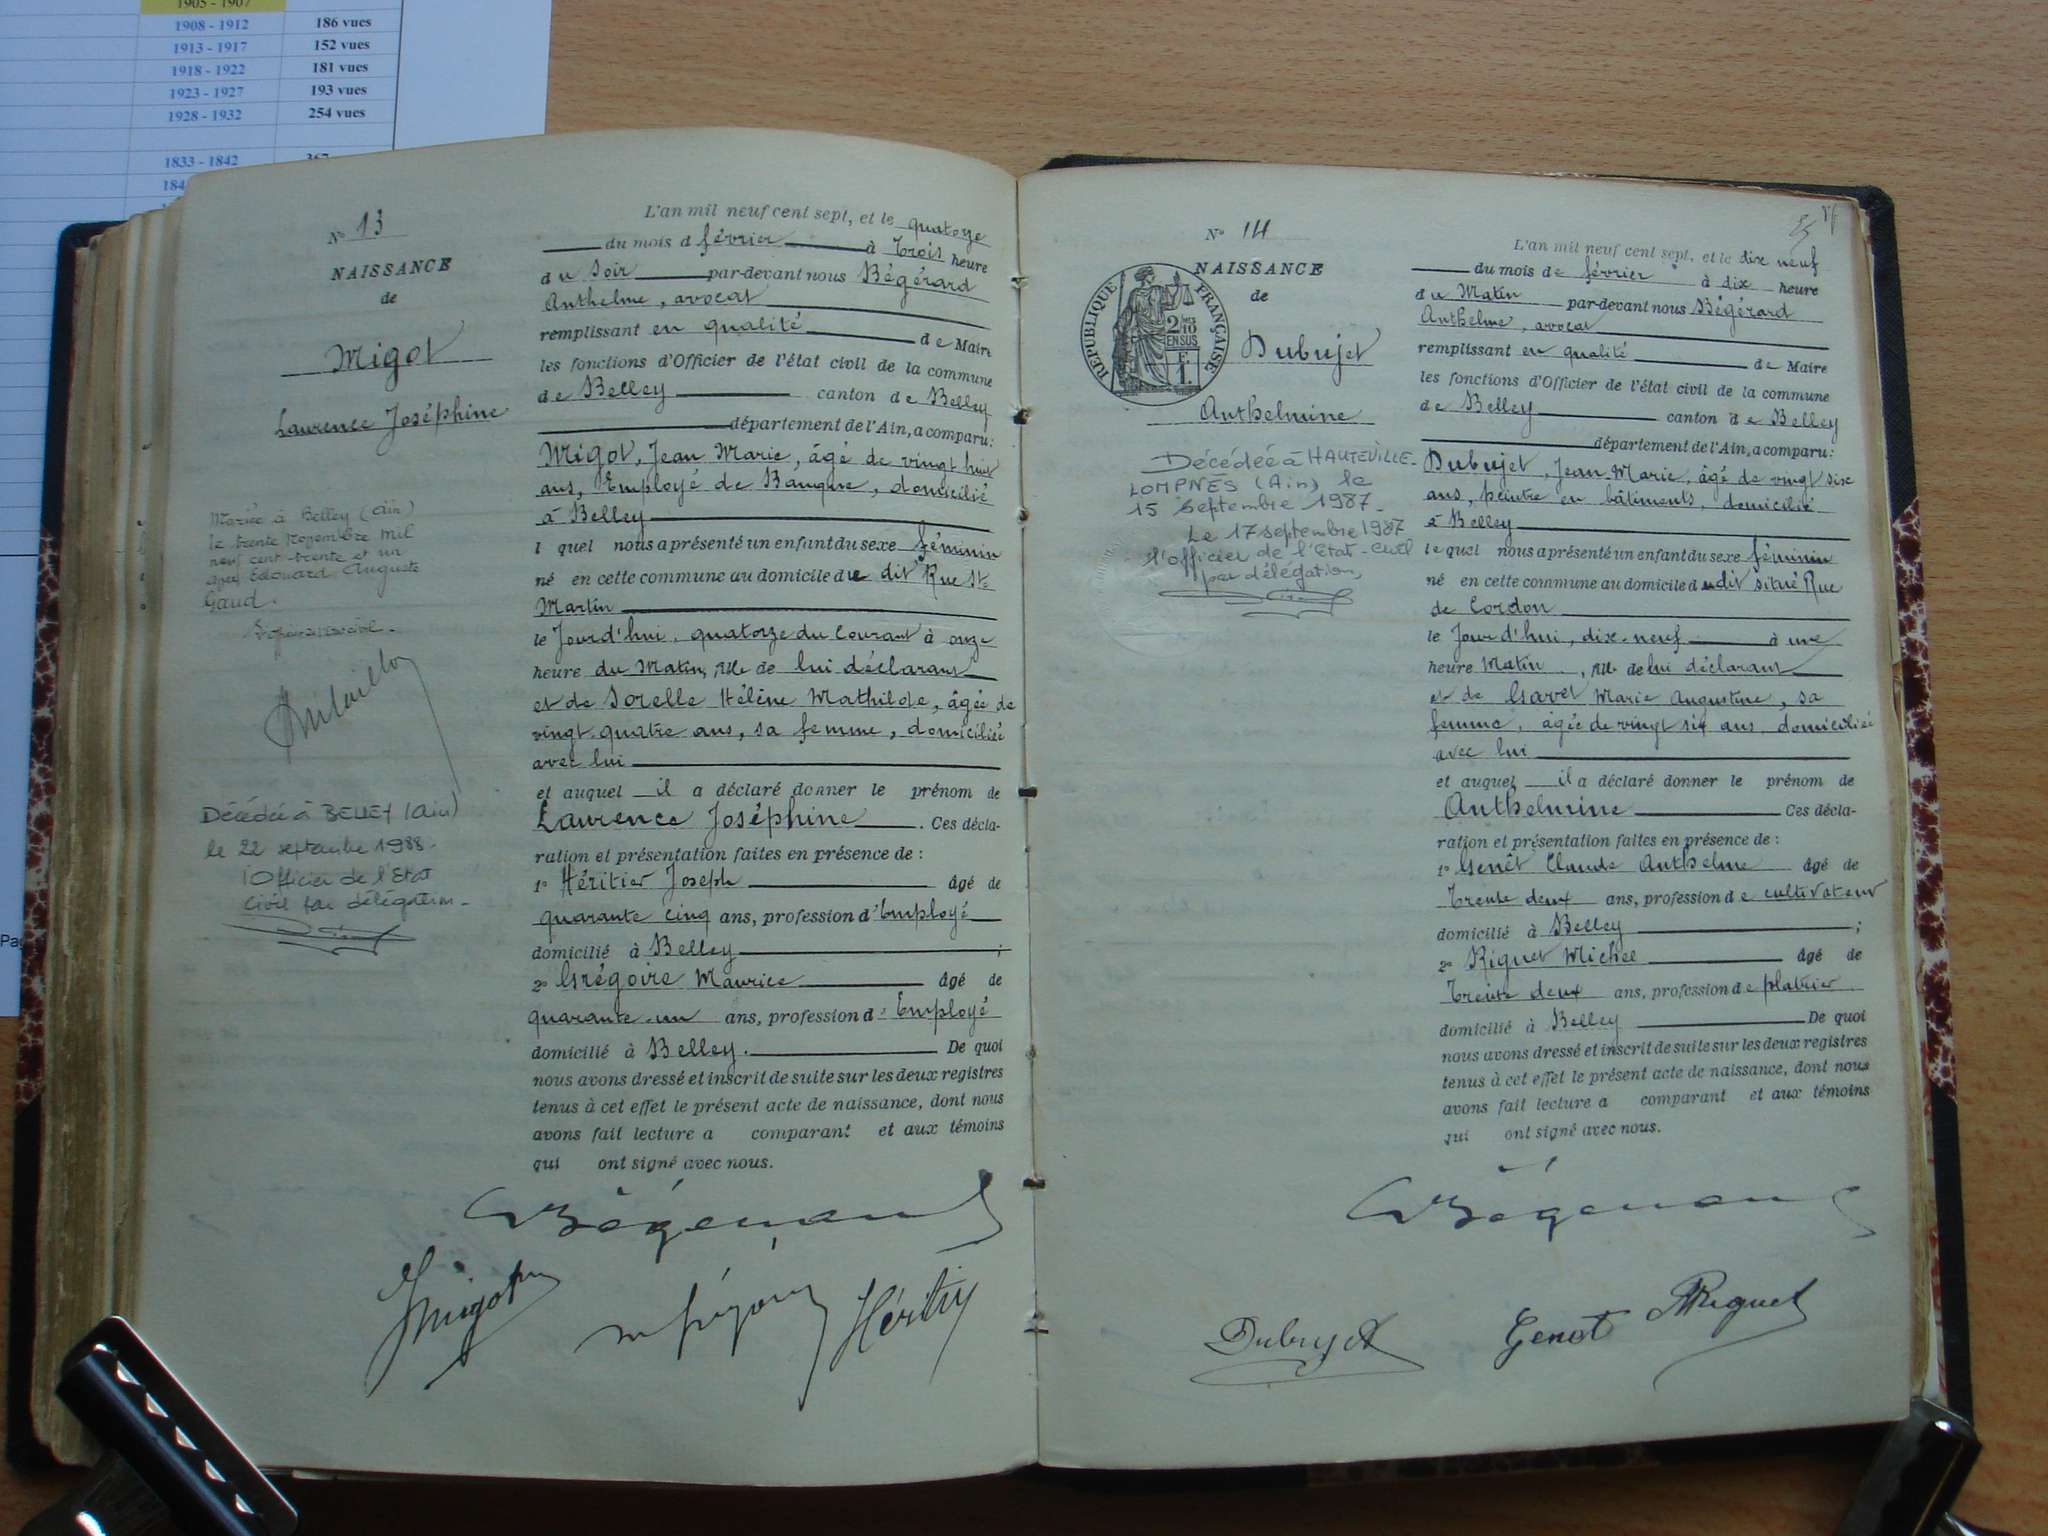 1905 - 1907
1908 - 1912 186 vues
1913 - 1917 152 vues
1918 - 1922 181 vues
1923 - 1927 193 vues
1928 - 1932 254 vues
1833 - 1842 367
184
Pag
N° 13
NAISSANCE
de
Migot
Laurence Joséphine
Mariée à Belley (Ain)
le trente novembre mil
neuf cent trente et un
avec Edouard Auguste
Gaud.
Décédée à BELLEY (Ain)
le 22 septembre 1988.
l'Officier de l'Etat
Civil par délégation.
L'an mil neuf cent sept, et le quatorze
du mois d février à trois heure
du soir par-devant nous Bégérard
Anthelme, avocat
remplissant en qualité de Maire
les fonctions d'Officier de l'état civil de la commune
de Belley canton de Belley
département de l'Ain, a comparu:
Migot, Jean Marie, âgé de vingt huit
ans, Employé de Banque, domicilié
à Belley
l quel nous a présenté un enfant du sexe féminin
né en cette commune au domicile du dit Rue St
Martin
le Jourd'hui, quatorze du courant à onze
heure du Matin, de lui déclarant
et de Sorelle Hélène Mathilde, âgée de
vingt-quatre ans, sa femme, domiciliée
avec lui
et auquel il a déclaré donner le prénom de
Laurence Joséphine. Ces décla-
ration et présentation faites en présence de :
1° Héritier Joseph âgé de
quarante cinq ans, profession d'Employé
domicilié à Belley ;
2° Grégoire Maurice âgé de
quarante-un ans, profession d'Employé
domicilié à Belley. De quoi
nous avons dressé et inscrit de suite sur les deux registres
tenus à cet effet le présent acte de naissance, dont nous
avons fait lecture a comparant et aux témoins
qui ont signé avec nous.
Migot
N° 14
NAISSANCE
de
RÉPUBLIQUE FRANÇAISE
2/10
EN SUS
F
1.
Dubujet
Anthelmine
Décédée à HAUTEVILLE-
LOMPNES (Ain) le
15 Septembre 1987.
Le 17 septembre 1987
l'officier de l'Etat-Civil
par délégation,
L'an mil neuf cent sept, et le dix neuf
du mois de février à dix heure
du Matin par-devant nous Bégérard
Anthelme, avocat
remplissant en qualité de Maire
les fonctions d'Officier de l'état civil de la commune
de Belley canton de Belley
département de l'Ain, a comparu:
Dubujet, Jean-Marie, âgé de vingt six
ans, peintre en bâtiments, domicilié
à Belley
le quel nous a présenté un enfant du sexe féminin
né en cette commune au domicile du dit situé Rue
de Cordon
le Jourd'hui, dix-neuf à une
heure Matin, de lui déclarant
et de Gavet Marie Augustine, sa
femme, âgée de vingt six ans domiciliée
avec lui
et auquel il a déclaré donner le prénom de
Anthelmine Ces décla-
ration et présentation faites en présence de :
1° Genêt Claude Anthelme âgé de
trente deux ans, profession de cultivateur
domicilié à Belley ;
2° Riguet Michel âgé de
trente deux ans, profession de platrier
domicilié à Belley De quoi
nous avons dressé et inscrit de suite sur les deux registres
tenus à cet effet le présent acte de naissance, dont nous
avons fait lecture a comparant et aux témoins
qui ont signé avec nous.
Dubujet Genet Riguet